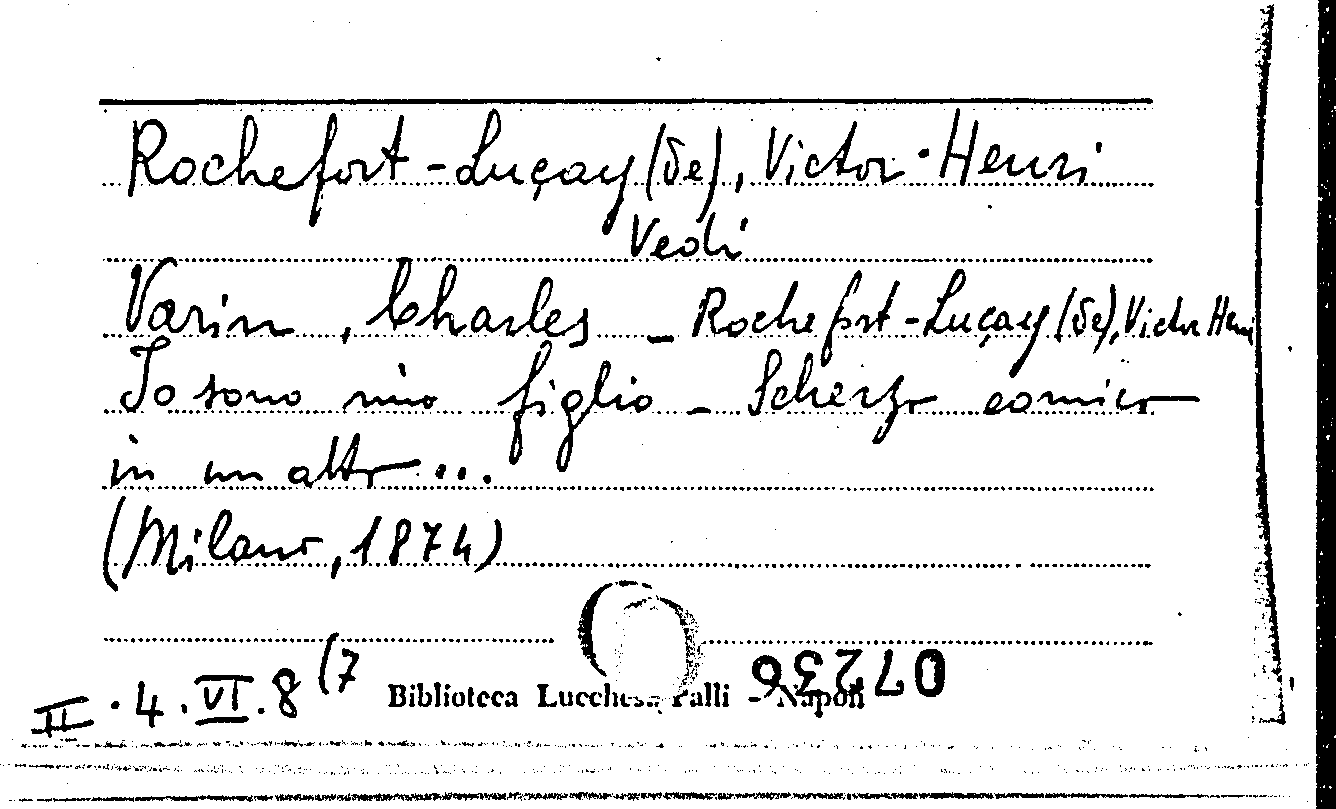 Rochefort-Luçay (de), Victor-Henri
Vedi
Varin, Charles - Rochefort-Luçay (de), Victor Henri
Io sono mio figlio - Scherzo comico
in un atto...
(Milano, 1874)
II.4.VI.8(7
Biblioteca Lucchesi Palli - Napoli
07236